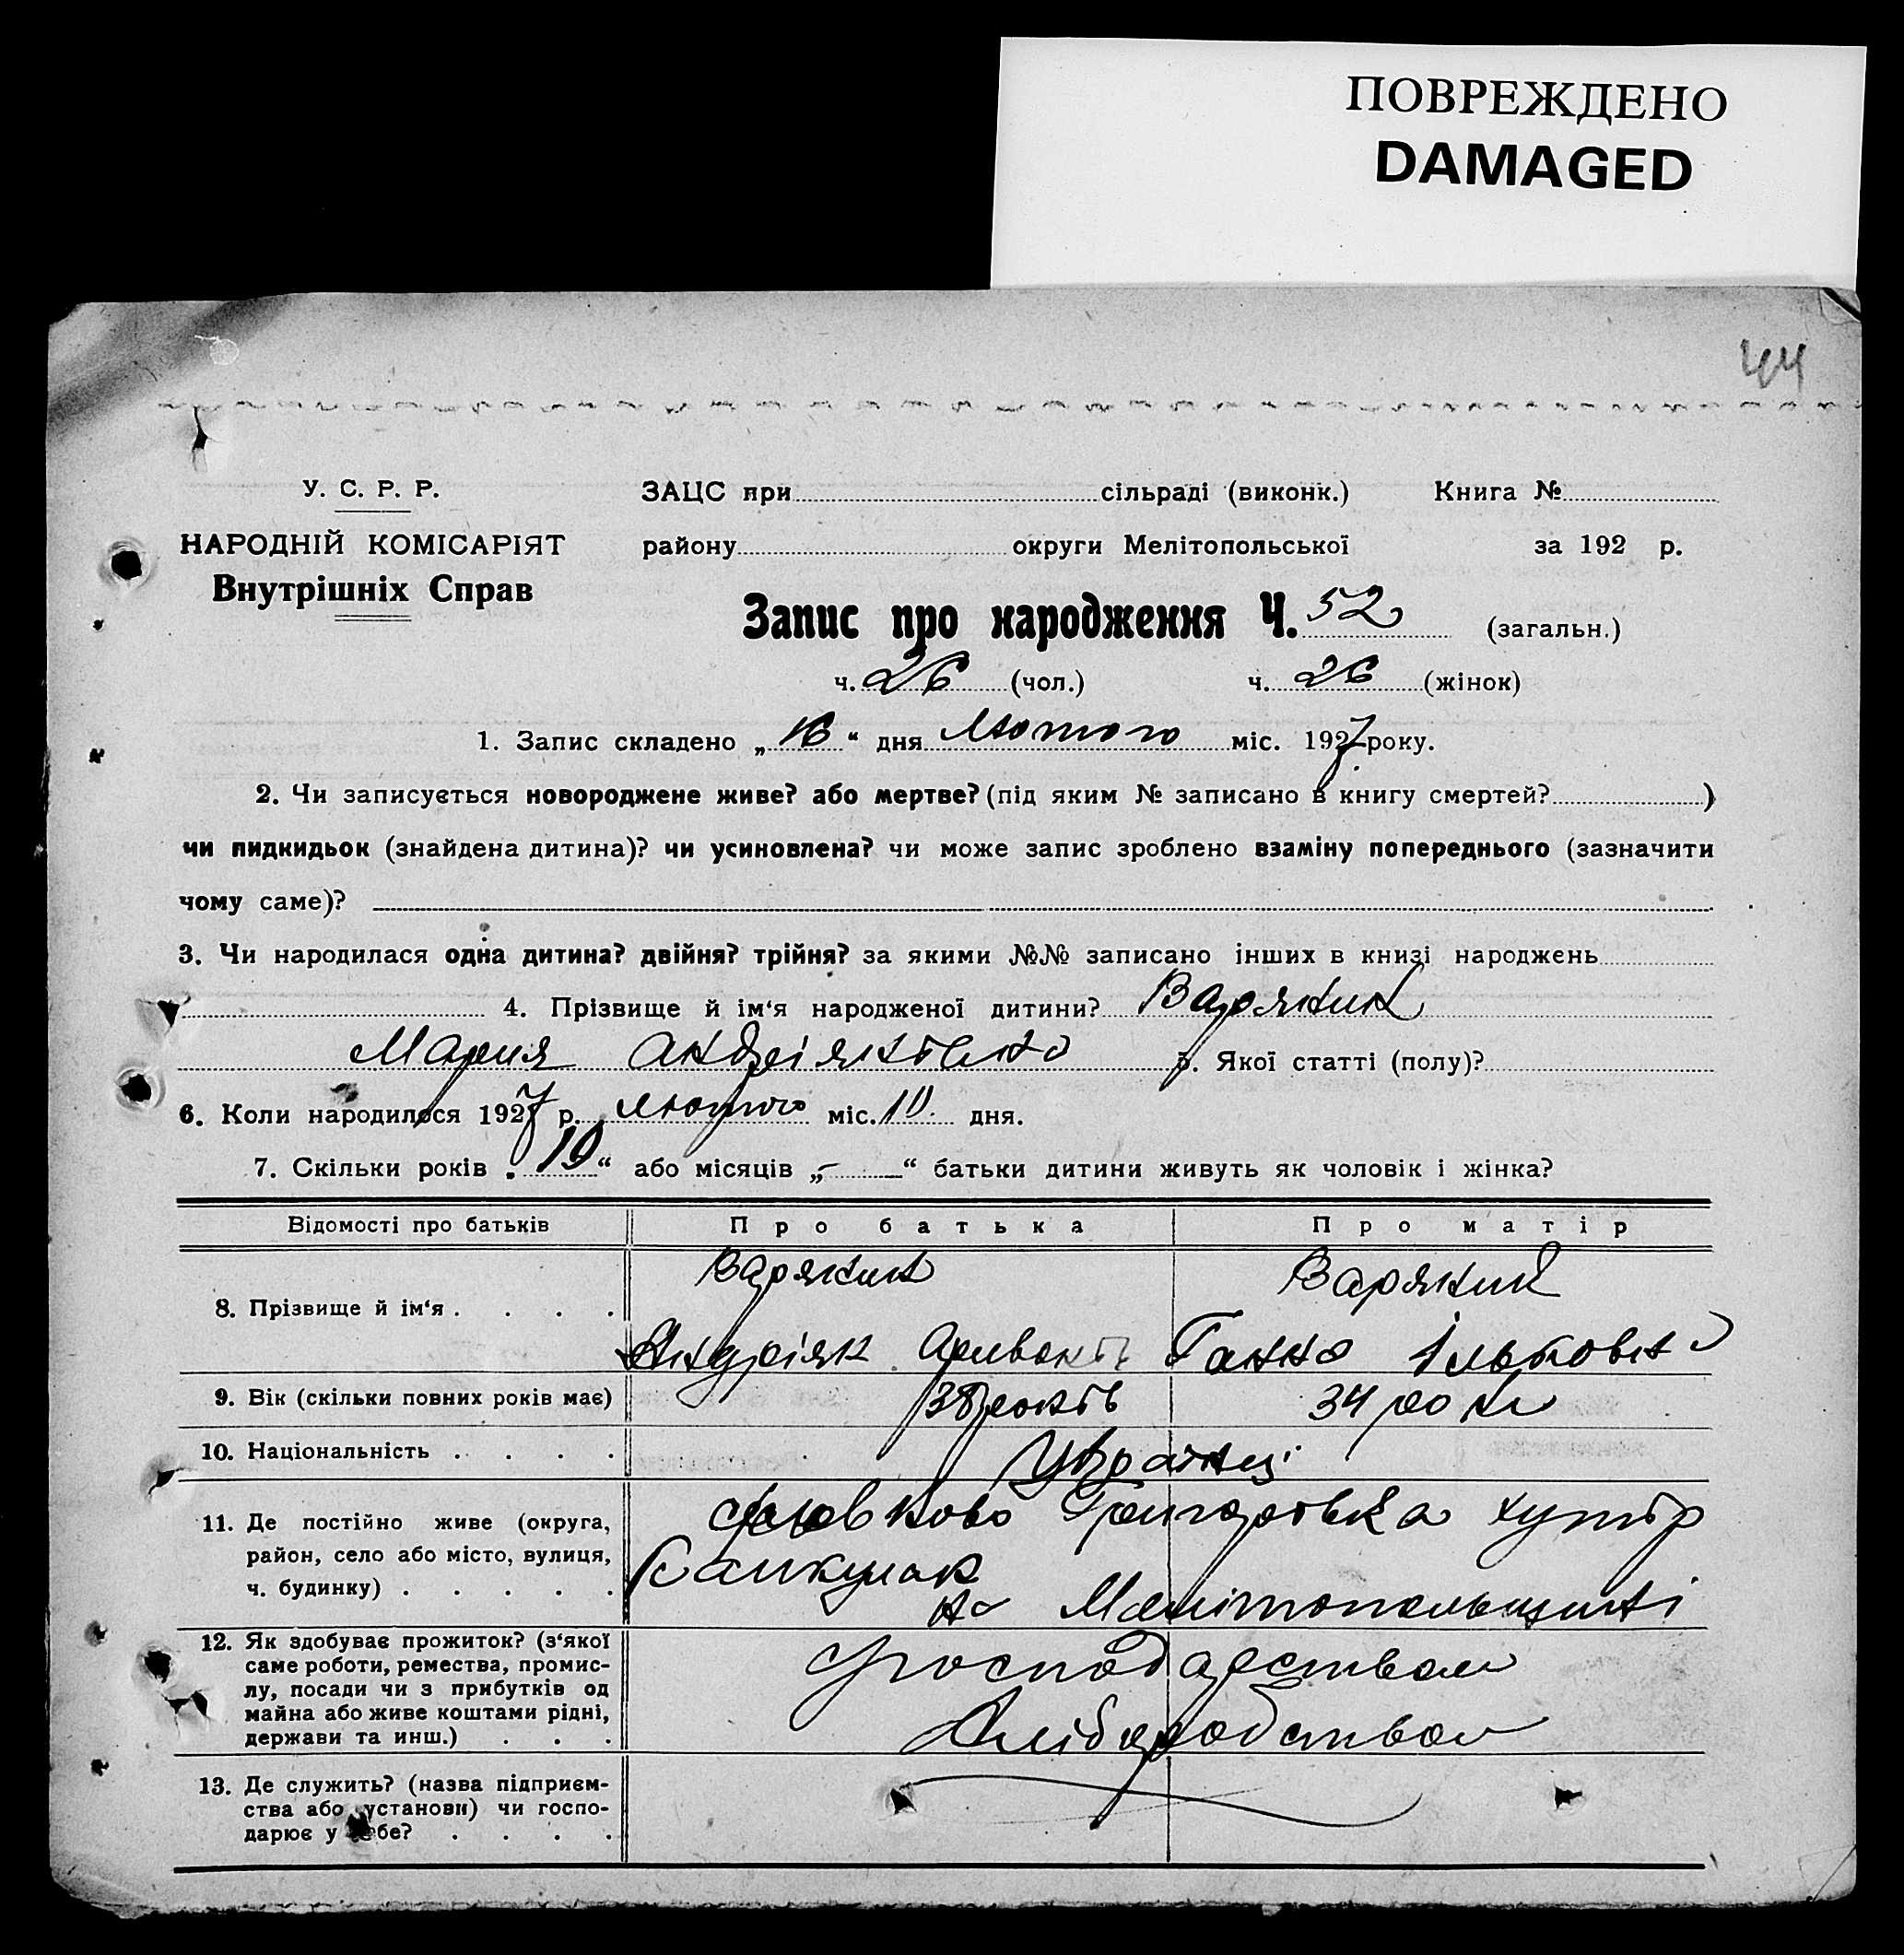 ПОВРЕЖДЕНО
DAMAGED
44
У. С. Р. Р.
ЗАЦС при сільраді (виконк.) Книга №
НАРОДНІЙ КОМІСАРІЯТ
району округи Мелітопольської за 192 р.
Внутрішніх Справ
Запис про народження Ч. 52 (загальн.)
ч. 26 (чол.) ч. 26 (жінок)
1. Запис складено „ 16 “ дня Лютого міс. 1927 року.
2. Чи записується новороджене живе? або мертве? (під яким № записано в книгу смертей? )
чи пидкидьок (знайдена дитина)? чи усиновлена? чи може запис зроблено взаміну попереднього (зазначити
чому саме)?
3. Чи народилася одна дитина? двійня? трійня? за якими №№ записано інших в книзі народжень
4. Прізвище й ім‘я народженої дитини? Варяник
Мария 5. Якої статті (полу)?
6. Коли народилося 1927 р. лютого міс. 10. дня.
7. Скільки років „ 10 “ або місяців „ – “ батьки дитини живуть як чоловік і жінка?
Відомості про батьків Про батька Про матір
8. Прізвище й ім‘я . . . . Варяник Варяник
Андріян Ганна
9. Вік (скільки повних років має) 38 років 34 роки
10. Національність . . . . Українці
11. Де постійно живе (округа,
район, село або місто, вулиця,
ч. будинку) . . . . .
хутір
на Мелітопольщині
12. Як здобуває прожиток? (з‘якої
саме роботи, ремества, промис-
лу, посади чи з прибутків од
майна або живе коштами рідні,
держави та инш.) . . .
господарством
Хліборобством
13. Де служить? (назва підприєм-
ства або установи) чи госпо-
дарює у себе? . . . .